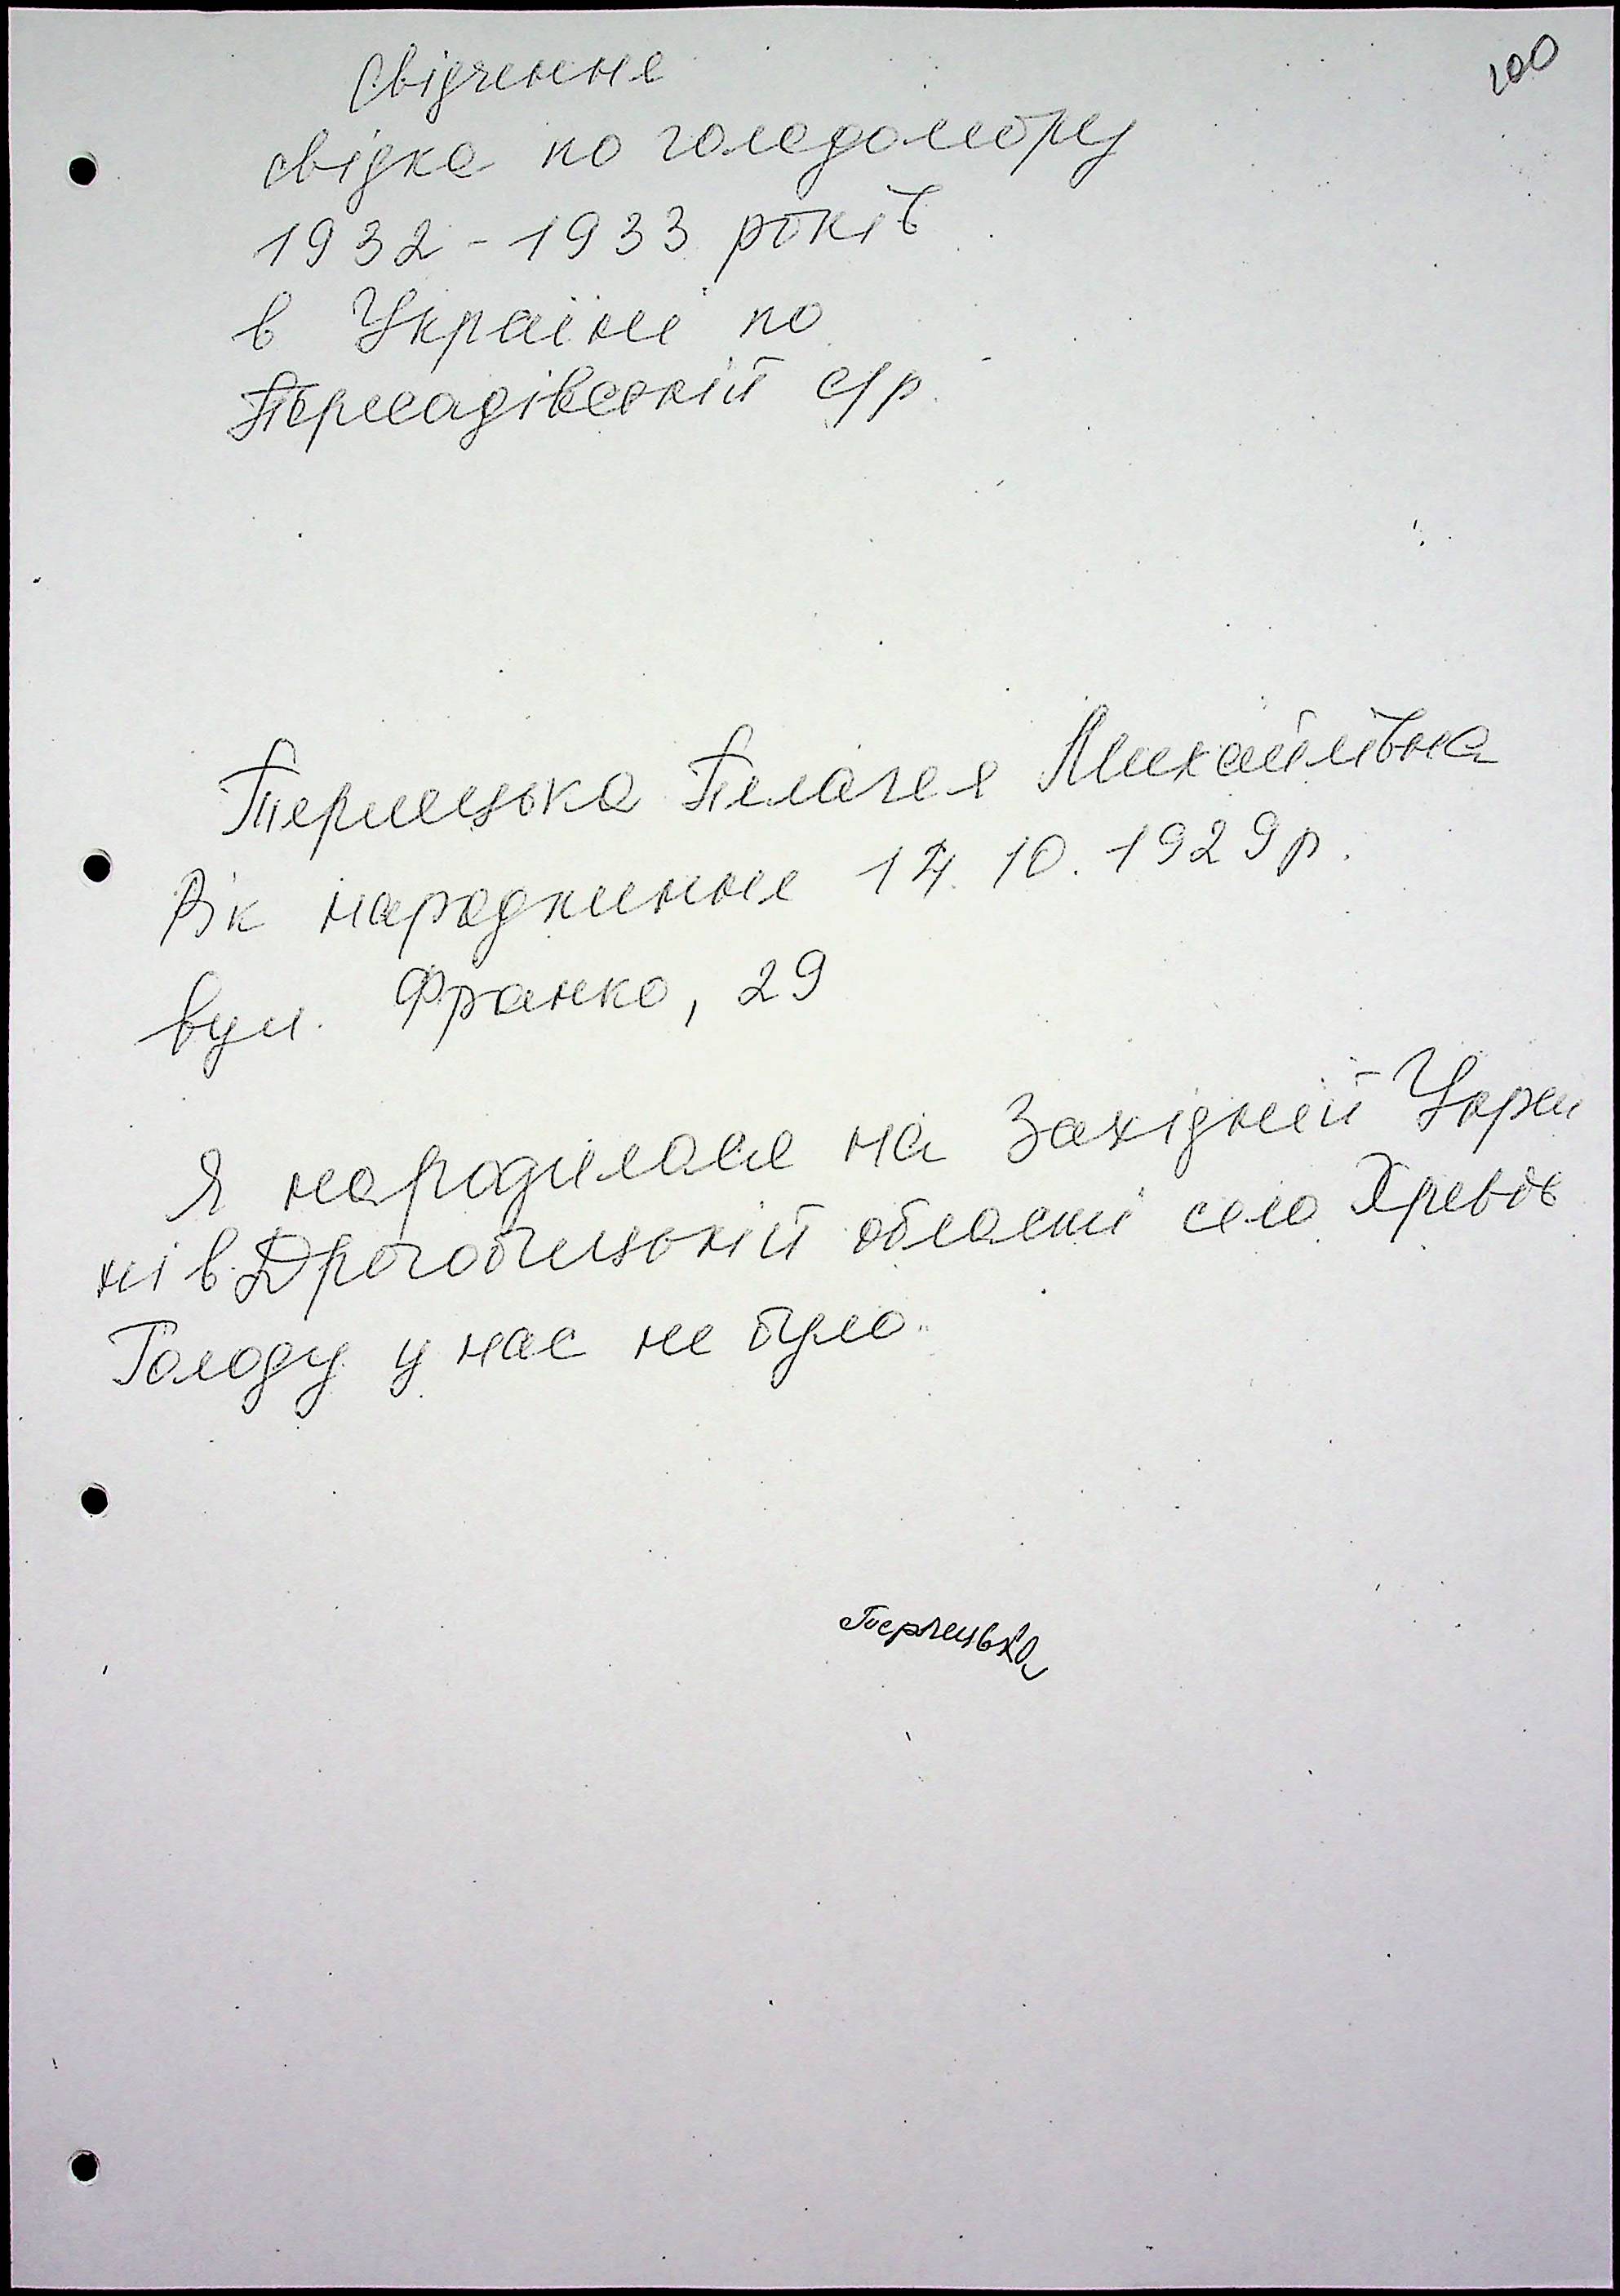 100
Свідчення
свідка по голодомору
1932-1933 років
в Україні по
Пересадівській с/р
Терлецька Пелагея Михайлівна
Рік народження 14.10.1929р.
вул. Франко, 29
Я народилася на Західній Украї
ні в Дрогобицькій області село
Голоду у нас не було.
Терлецька